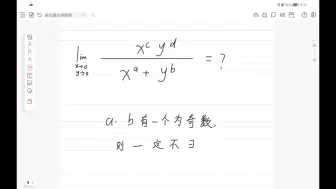 lim x→0 y→0 x^c y^d / x^a + y^b = ?
a. b 有一个为奇数.
则一定不∃